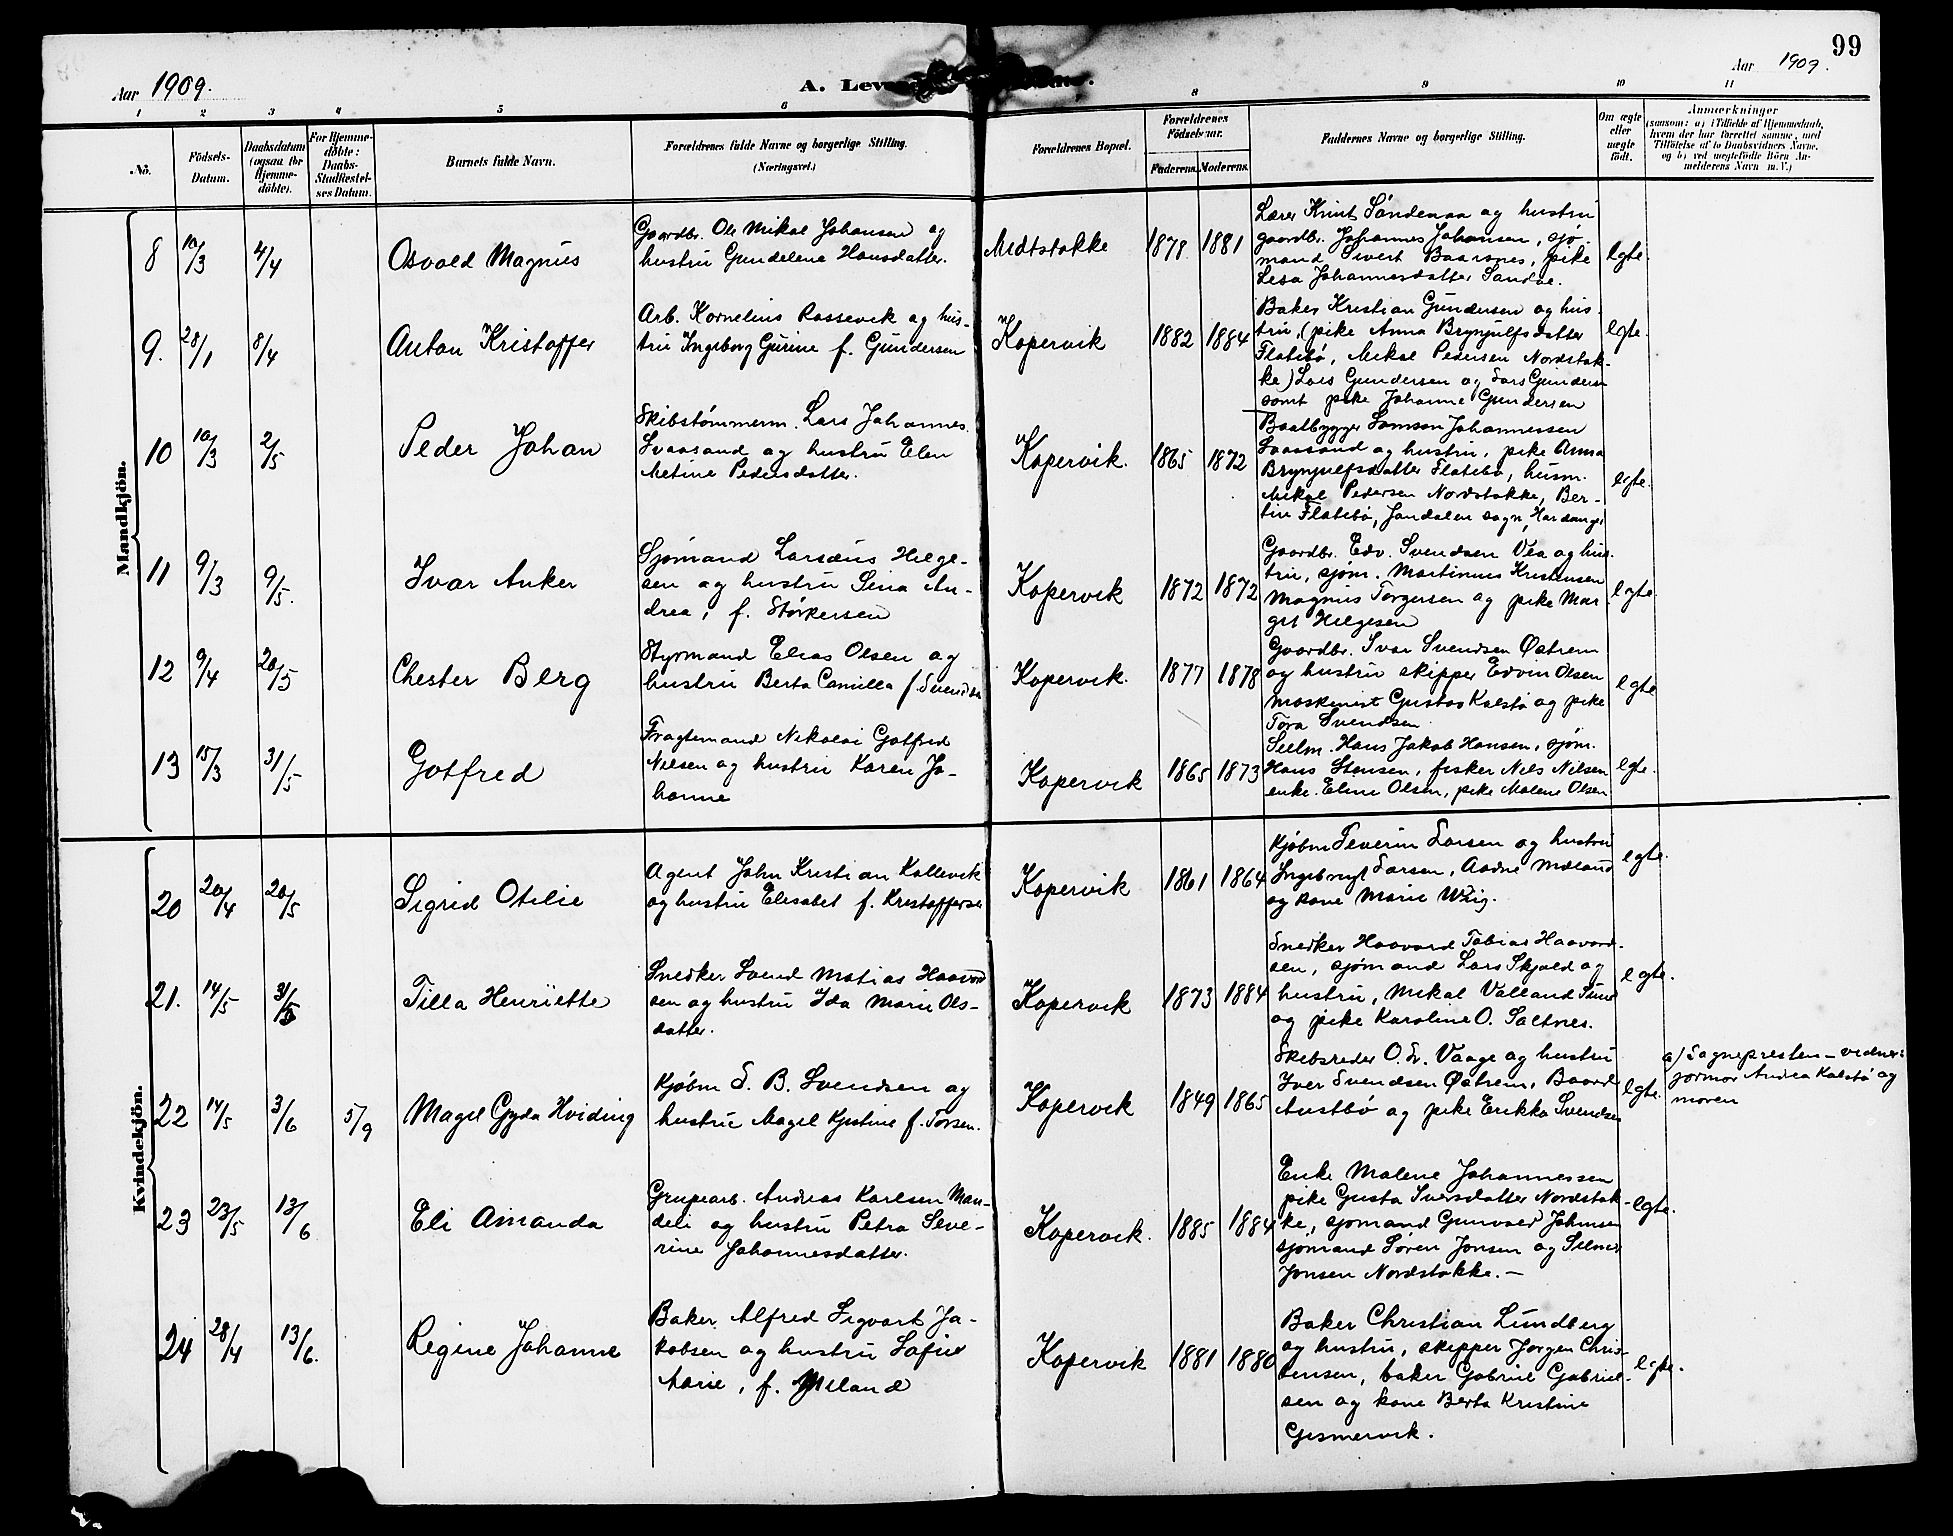 99
Aar 1909.
A. Leve
Aar 1909.
1 2 3 4 5 6 8 9 10 11
No.
Födsels-
Datum.
Daabsdatum
(ogsaa for
Hjemme-
döbte).
For Hjemme-
döbte:
Daabs-
Stadfæstel-
ses Datum.
Barnets fulde Navn.
Forældrenes fulde Navne og borgerlige Stilling.
(Næringsvei.)
Forældrenes Bopæl.
Forældrenes
Födselsaar.
Faderens. Moderens.
Faddernes Navne og borgerlige Stilling.
Om ægte
eller
uægte
födt.
Anmærkninger
(saasom: a) i Tilfælde af Hjemmedaab,
hvem der har forrettet samme, med
Tilföielse af to Daabsvidners Navne,
og b) ved uægtefödte Börn An-
melderens Navn m. V.)
Mandkjön.
8 10/3 4/4 Osvald Magnus
Gaardbr. Ole Mikal Johansen og
hustru Gundelene Hansdatter.
Midtstokke 1878 1881
Lærer Knut Söndenaa og hustru
gaardbr. Johannes Johansen, sjö-
mand Sivert Baarsnes, pike
Lesa Johannesdatter Sandve.
egte.
9. 28/1 8/4 Anton Kristoffer
Arb. Kornelius Rossevik og hus-
tru Ingeborg Gurine f. Gundersen
Kopervik 1882 1884
Baker Kristian Gundersen og hus-
tru, (pike Anna Brynjulfsdatter
Flatebö, Mikal Pedersen Nordstok-
ke) Lars Gundersen og Lars Gunders
samt pike Johanne Gundersen
egte.
10 10/3 2/5 Peder Johan
Skibstömmerm. Lars Johannes.
Svaasand og hustru Elen
Metine Pedersdatter.
Kopervik. 1865 1872
Baatbygger Samson Johannessen
Svaasand og hustru, pike Anna
Brynjulfsdatter Flatebö, husm.
Mikal Pedersen Nordstokke, Ber-
tin Flatebö, Jondalen sogn, Hardanger
egte.
11 9/3 9/5. Ivar Anker
Sjömand Larsæus Helge-
sen og hustru Sina An-
drea, f. Störkersen
Kopervik 1872 1872
Gaardbr. Edv. Svendsen Vea og hus-
tru, sjöm. Martinus Kristensen
Magnus Torgersen og pike Mar-
git Helgesen
egte
12 9/4 20/5 Chester Berg
Styrmand Elias Olsen og
hustru Berta Camilla f. Svendsen
Kopervik. 1877 1878
Gaardbr. Ivar Svendsen Østrem
og hustru skipper Edvin Olsen
Maskinist Gustav Kalstö og pike
Tora Svendsen
egte
13 15/3 31/5 Gotfred
Fragtemand Nikolai Gotfred
Nilsen og hustru Karen Jo-
hanne
Kopervik 1865 1873
Seilm. Hans Jakob Hansen, sjöm.
Hans Stensen, fisker Nils Nilsen
enke. Eline Olsen, pike Malene Olsen
egte.
Kvindekjön.
20 20/4 20/5 Sigrid Otelie
Agent John Kristian Kollevik
og hustru Elisabet f. Kristoffersen
Kopervik 1861 1864
Kjöbm Severin Larsen og hustru
Larsen, Aadne Mæland
og kone Marie Wiig.
egte.
21. 14/5 31/5 Tilla Henriette
Snedker Svend Matias Haavard
sen og hustru Ida Marie Ols-
datter.
Kopervik 1873 1884
Snedker Haavard Tobias Haavard-
sen, sjömand Lars Skjold og
hustru, Mikal Valland Sund
og pike Karoline O. Saltnes.
egte.
22 14/5 3/6 5/9 Magel Gyda Hviding
Kjöbm S. B. Svendsen og
hustru Magel Kjistine f. Torsen.
Kopervik 1849 1865
Skibsreder O. Sv. Vaage og hustru
Iver Svendsen Østrem, Baard
Austbö og pike Erikka Svendsen
egte.
a) Sognepresten – vidner:
jormor Andrea Kalstö og
moren
23 23/5 13/6 Eli Amanda
Grupearb. Andreas Karlsen Man-
deli og hustru Petra Seve-
rine Johannesdatter.
Kopervik. 1885 1884
Enke Malene Johannessen
pike Gusta Iversdatter Nordstok-
ke, sjömand Gunvald Johnsen
sjömand Sören Jonsen og Selmer
Jonsen Nordstokke. –
egte.
24 28/4 13/6. Regine Johanne
Baker Alfred Sigvart Ja-
kobsen og hustru Sofie
Marie, f. Meland
Kopervik 1881 1880
Baker Christian Lundberg
og hustru, skipper Jörgen Chris-
tensen, baker Gabriel Gabriel-
sen og kone Berta Kristine
Gismervik.
egte.